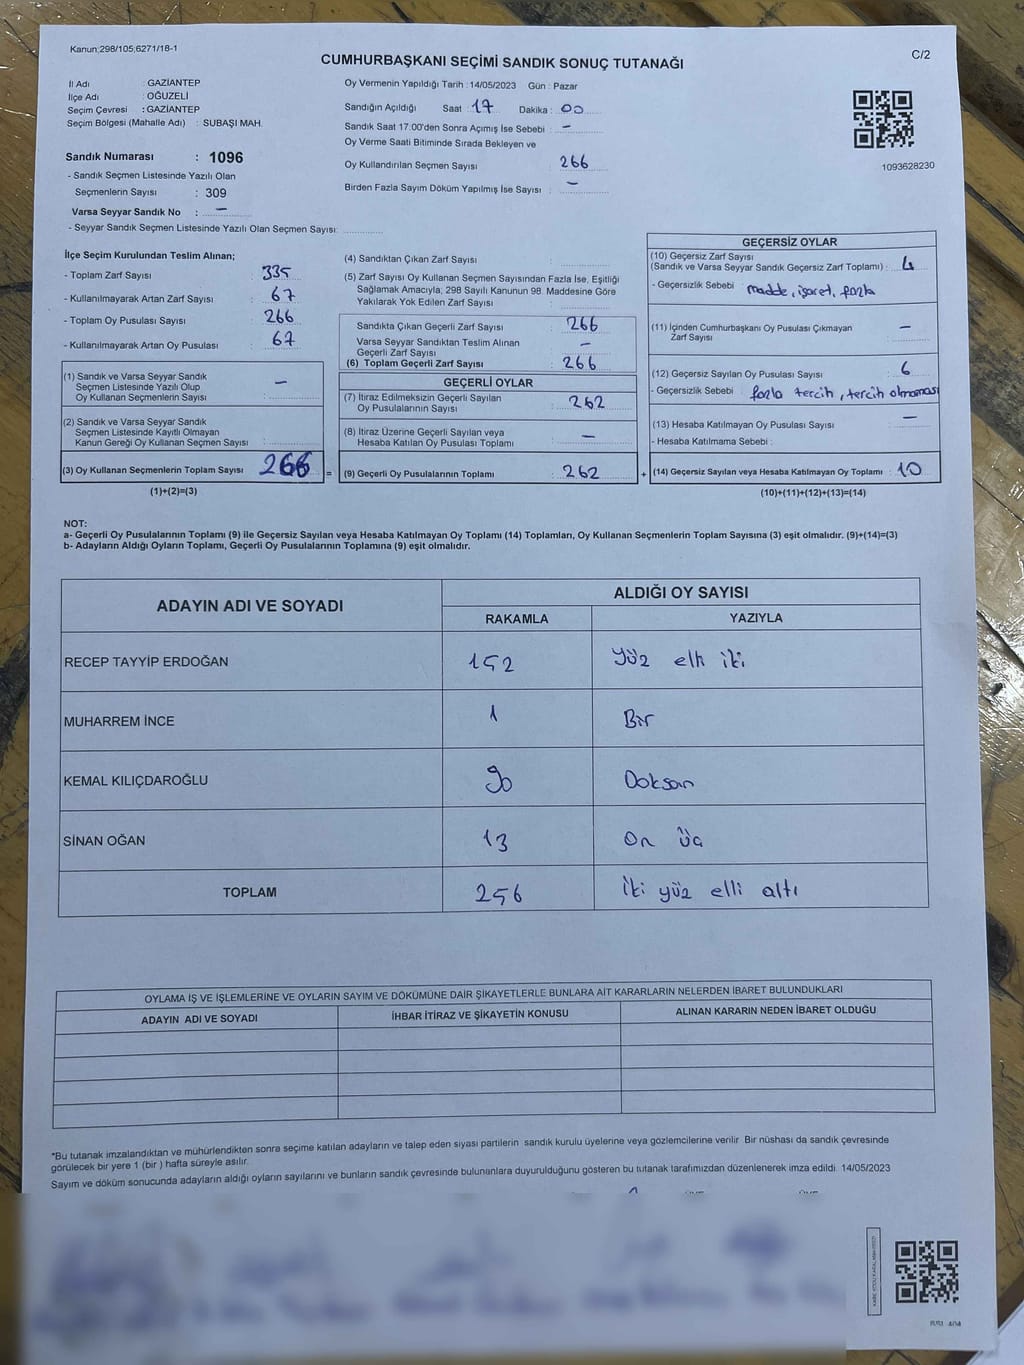 Kanun;298/105;6271/18-1
C/2
CUMHURBAŞKANI SEÇİMİ SANDIK SONUÇ TUTANAĞI
İl Adı : GAZİANTEP
İlçe Adı : OĞUZELİ
Seçim Çevresi : GAZİANTEP
Seçim Bölgesi (Mahalle Adı) : SUBAŞI MAH.
Sandık Numarası : 1096
- Sandık Seçmen Listesinde Yazılı Olan
Seçmenlerin Sayısı : 309
Varsa Seyyar Sandık No : –
- Seyyar Sandık Seçmen Listesinde Yazılı Olan Seçmen Sayısı:
Oy Vermenin Yapıldığı Tarih :14/05/2023 Gün : Pazar
Sandığın Açıldığı Saat : 17 Dakika : 00
Sandık Saat 17:00'den Sonra Açımış İse Sebebi : –
Oy Verme Saati Bitiminde Sırada Bekleyen ve
Oy Kullandırılan Seçmen Sayısı : 266
Birden Fazla Sayım Döküm Yapılmış İse Sayısı : –
1093628230
İlçe Seçim Kurulundan Teslim Alınan;
- Toplam Zarf Sayısı : 335
- Kullanılmayarak Artan Zarf Sayısı : 67
- Toplam Oy Pusulası Sayısı : 266
- Kullanılmayarak Artan Oy Pusulası : 67
(1) Sandık ve Varsa Seyyar Sandık
Seçmen Listesinde Yazılı Olup
Oy Kullanan Seçmenlerin Sayısı : –
(2) Sandık ve Varsa Seyyar Sandık
Seçmen Listesinde Kayıtlı Olmayan
Kanun Gereği Oy Kullanan Seçmen Sayısı :
(3) Oy Kullanan Seçmenlerin Toplam Sayısı : 266
(1)+(2)=(3)
(4) Sandıktan Çıkan Zarf Sayısı :
(5) Zarf Sayısı Oy Kullanan Seçmen Sayısından Fazla İse, Eşitliği
Sağlamak Amacıyla; 298 Sayılı Kanunun 98. Maddesine Göre
Yakılarak Yok Edilen Zarf Sayısı :
Sandıkta Çıkan Geçerli Zarf Sayısı : 266
Varsa Seyyar Sandıktan Teslim Alınan
Geçerli Zarf Sayısı : –
(6) Toplam Geçerli Zarf Sayısı : 266
GEÇERLİ OYLAR
(7) İtiraz Edilmeksizin Geçerli Sayılan
Oy Pusulalarının Sayısı : 262
(8) İtiraz Üzerine Geçerli Sayılan veya
Hesaba Katılan Oy Pusulası Toplamı : –
= (9) Geçerli Oy Pusulalarının Toplamı : 262
GEÇERSİZ OYLAR
(10) Geçersiz Zarf Sayısı
(Sandık ve Varsa Seyyar Sandık Geçersiz Zarf Toplamı) : 4
- Geçersizlik Sebebi : madde, işaret, fazla
(11) İçinden Cumhurbaşkanı Oy Pusulası Çıkmayan
Zarf Sayısı : –
(12) Geçersiz Sayılan Oy Pusulası Sayısı : 6
- Geçersizlik Sebebi : fazla tercih, tercih olmaması
(13) Hesaba Katılmayan Oy Pusulası Sayısı : –
- Hesaba Katılmama Sebebi :
+ (14) Geçersiz Sayılan veya Hesaba Katılmayan Oy Toplamı : 10
(10)+(11)+(12)+(13)=(14)
NOT:
a- Geçerli Oy Pusulalarının Toplamı (9) ile Geçersiz Sayılan veya Hesaba Katılmayan Oy Toplamı (14) Toplamları, Oy Kullanan Seçmenlerin Toplam Sayısına (3) eşit olmalıdır. (9)+(14)=(3)
b- Adayların Aldığı Oyların Toplamı, Geçerli Oy Pusulalarının Toplamına (9) eşit olmalıdır.
ADAYIN ADI VE SOYADI
ALDIĞI OY SAYISI
RAKAMLA YAZIYLA
RECEP TAYYİP ERDOĞAN 152 yüz elli iki
MUHARREM İNCE 1 Bir
KEMAL KILIÇDAROĞLU 90 Doksan
SİNAN OĞAN 13 On üç
TOPLAM 256 iki yüz elli altı
OYLAMA İŞ VE İŞLEMLERİNE VE OYLARIN SAYIM VE DÖKÜMÜNE DAİR ŞİKAYETLERLE BUNLARA AİT KARARLARIN NELERDEN İBARET BULUNDUKLARI
ADAYIN ADI VE SOYADI İHBAR İTİRAZ VE ŞİKAYETİN KONUSU ALINAN KARARIN NEDEN İBARET OLDUĞU
*Bu tutanak imzalandıktan ve mühürlendikten sonra seçime katılan adayların ve talep eden siyasi partilerin sandık kurulu üyelerine veya gözlemcilerine verilir. Bir nüshası da sandık çevresinde
görülecek bir yere 1 (bir ) hafta süreyle asılır.
Sayım ve döküm sonucunda adayların aldığı oyların sayılarını ve bunların sandık çevresinde bulunanlara duyurulduğunu gösteren bu tutanak tarafımızdan düzenlenerek imza edildi. 14/05/2023